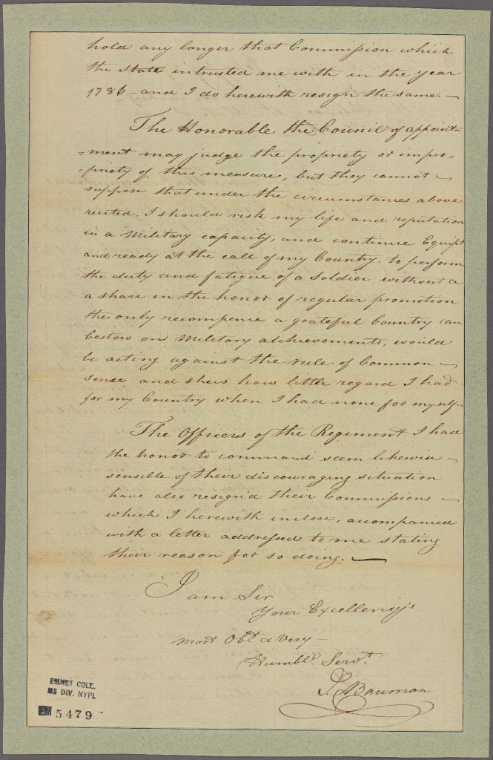 hold any longer that Commission which
the State intrusted me with in the year
1786 and I do herewith resign the same.
The Honorable the Council of appoint-
=ment may judge the propriety or impro-
=priety of this measure, but they cannot
suppose that under the circumstances above
recited, I should risk my life and reputation
in a Military capacity, and continue Equipt
and ready at the call of my Country, to perform
the duty and fatigue of a Soldier without a
a share in the honor of regular promotion
the only recompence a grateful Country can
bestow on Military atchievements, would
be acting against the rule of Common
sense and shew how little regard I had
for my Country when I had none for myself.
The Officers of the Regiment I had
the honor to command seem likewise
sensible of their discouraging situation
have also resign'd their Commissions
which I herewith inclose, accompanied
with a letter addressed to me stating
their reason for so doing.
I am Sir
Your Excellency's
most Obt & very
Humble Servt.
S. Bauman
EMMET COLL.
MS DIV. NYPL
EM 5479